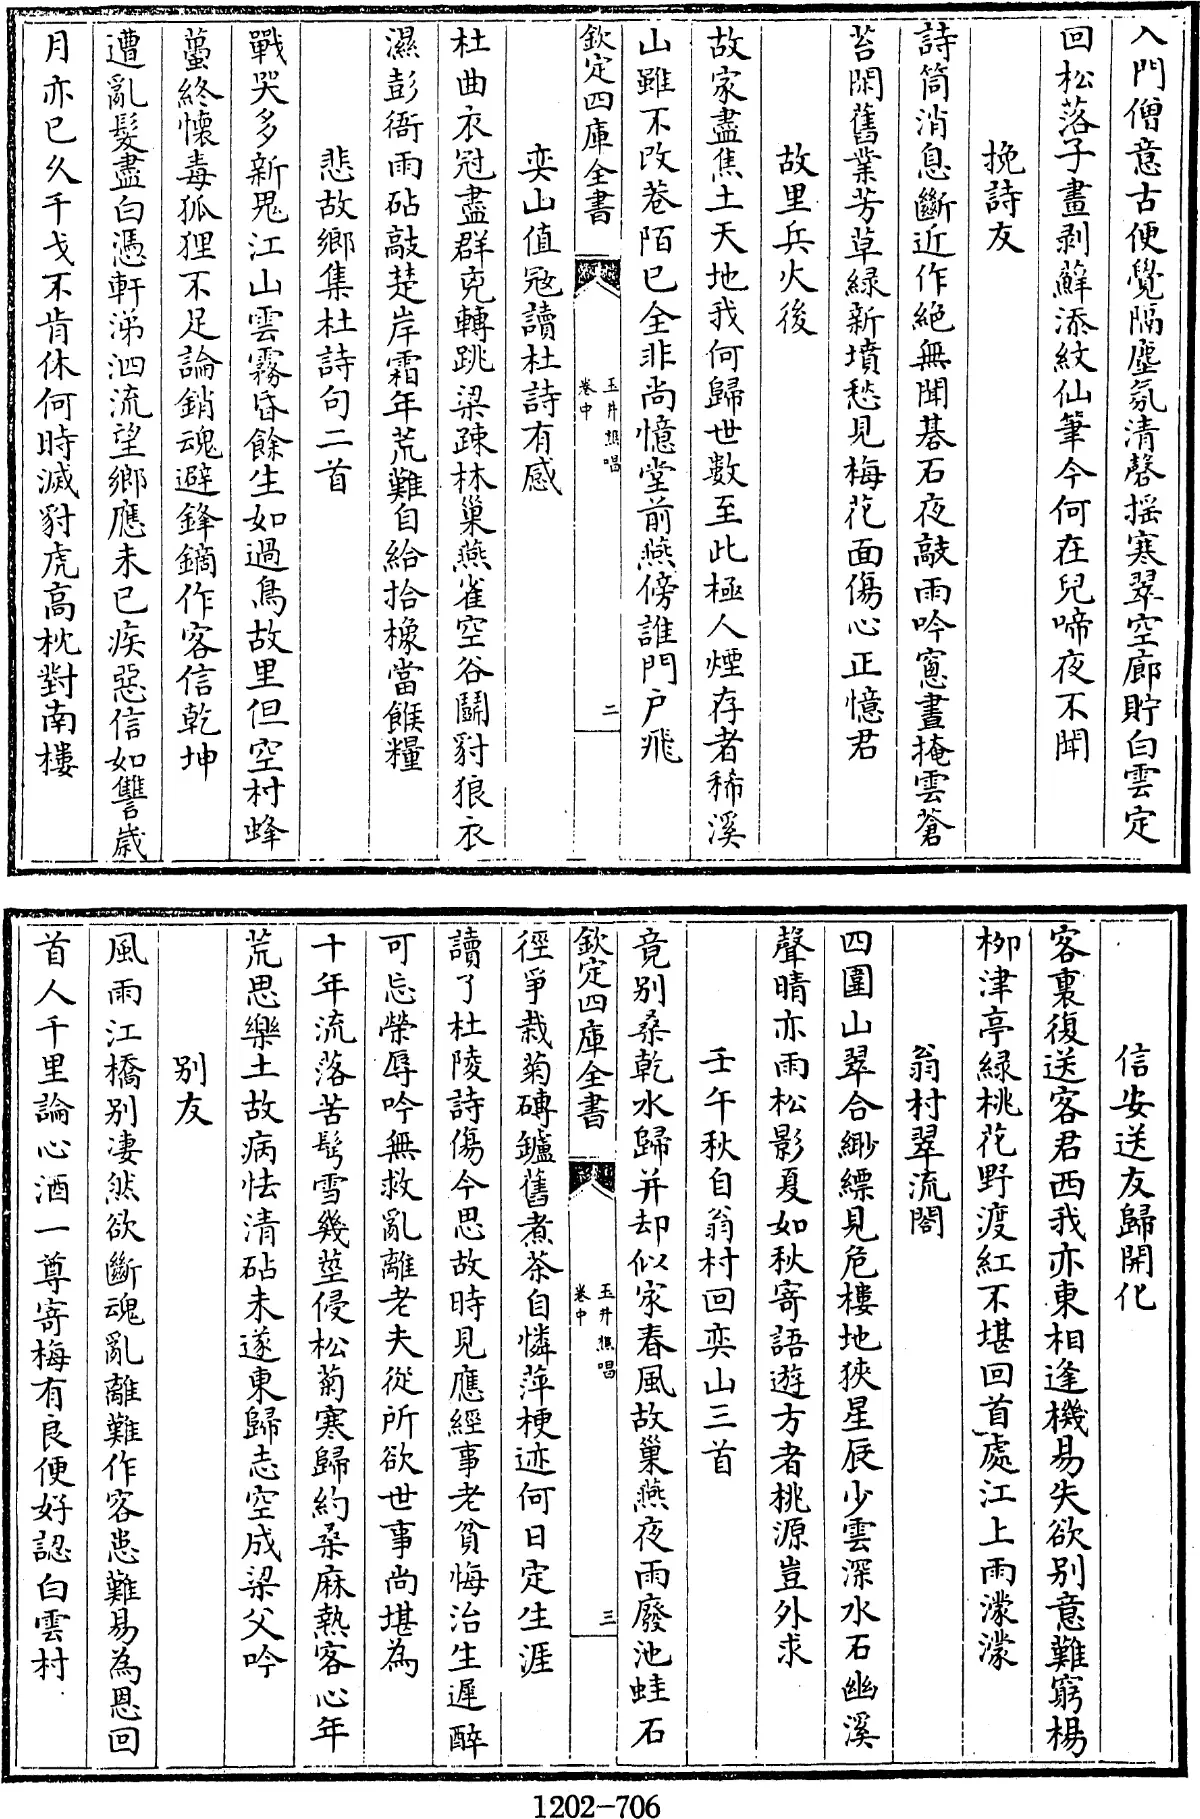 入門僧意古便覺隔塵氛清磬揺寒翠空廊貯白雲定
回松落子畫剥蘚添紋仙筆今何在兒啼夜不聞
挽詩友
詩筒消息斷近作絶無聞碁石夜敲雨吟窻晝掩雲蒼
苔閑舊業芳草緑新墳愁見梅花面傷心正憶君
故里兵火後
故家盡焦土天地我何歸世數至此極人煙存者稀溪
山雖不改巷陌已全非尚憶堂前燕傍誰門户飛
欽定四庫全書
玉井樵唱
卷中
二
奕山值冦讀杜詩有感
杜曲衣冠盡群兇轉跳梁踈林巢燕雀空谷鬭豺狼衣
濕彭衙雨砧敲楚岸霜年荒難自給拾橡當餱糧
悲故鄉集杜詩句二首
戰哭多新鬼江山雲霧昏餘生如過鳥故里但空村蜂
蠆終懷毒狐狸不足論銷魂避鋒鏑作客信乾坤
遭亂髮盡白憑軒涕泗流望鄉應未已疾惡信如讐歳
月亦已久干戈不肯休何時滅豺虎高枕對南樓
信安送友歸開化
客裏復送客君西我亦東相逢機易失欲别意難窮楊
柳津亭緑桃花野渡紅不堪回首處江上雨濛濛
翁村翠流閣
四圍山翠合緲縹見危樓地狹星辰少雲深水石幽溪
聲晴亦雨松影夏如秋寄語遊方者桃源豈外求
壬午秋自翁村回奕山三首
竟别桑乾水歸并却似家春風故巢燕夜雨廢池蛙石
欽定四庫全書
玉井樵唱
卷中
三
徑爭栽菊磚鑪舊煮茶自憐萍梗迹何日定生涯
讀了杜陵詩傷今思故時見應經事老貧悔治生遲醉
可忘榮辱吟無救亂離老夫從所欲世事尚堪為
十年流落苦髩雪幾莖侵松菊寒歸約桑麻熟客心年
荒思樂土故病怯清砧未遂東歸志空成梁父吟
别友
風雨江橋别凄然欲斷魂亂離難作客患難易為恩回
首人千里論心酒一尊寄梅有良便好認白雲村
1202-706